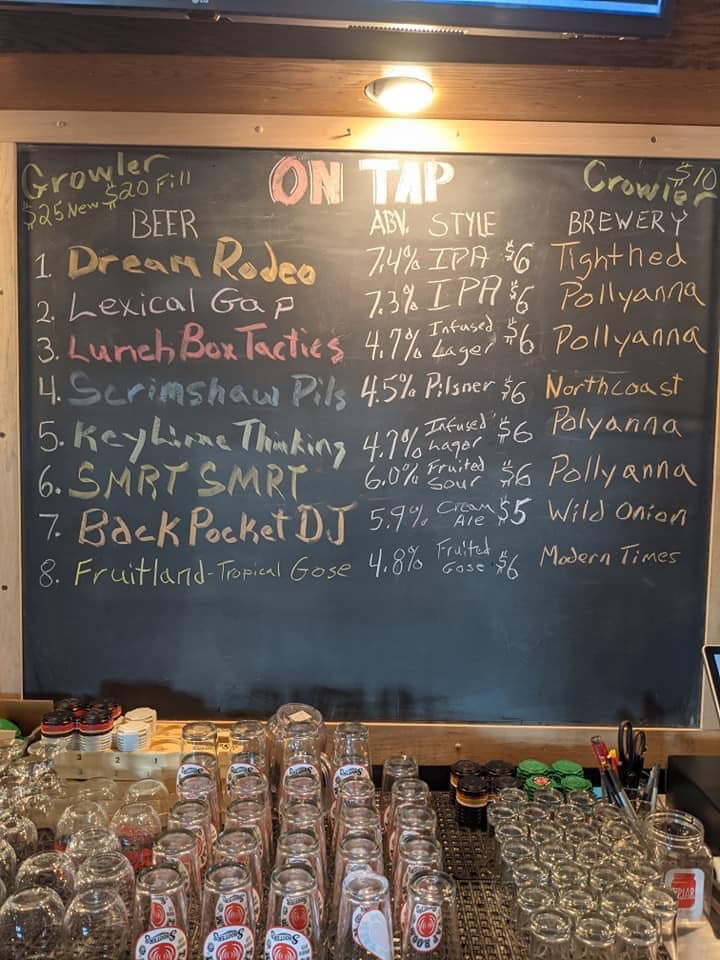 Growler
$25 New $20 Fill
ON TAP
Crowler $10
BEER ABV. STYLE BREWERY
1. Dream Rodeo 7.4% IPA $6 Tighthed
2. Lexical Gap 7.3% IPA $6 Pollyanna
3. LunchBox Tactics 4.7% Infused Lager $6 Pollyanna
4. Scrimshaw Pils 4.5% Pilsner $6 Northcoast
5. Key Lime Thinking 4.7% Infused Lager $6 Polyanna
6. SMRT SMRT 6.0% Fruited Sour $6 Pollyanna
7. Back Pocket DJ 5.9% Cream Ale $5 Wild Onion
8. Fruitland-Tropical Gose 4.8% Fruited Gose $6 Modern Times
3 2 1